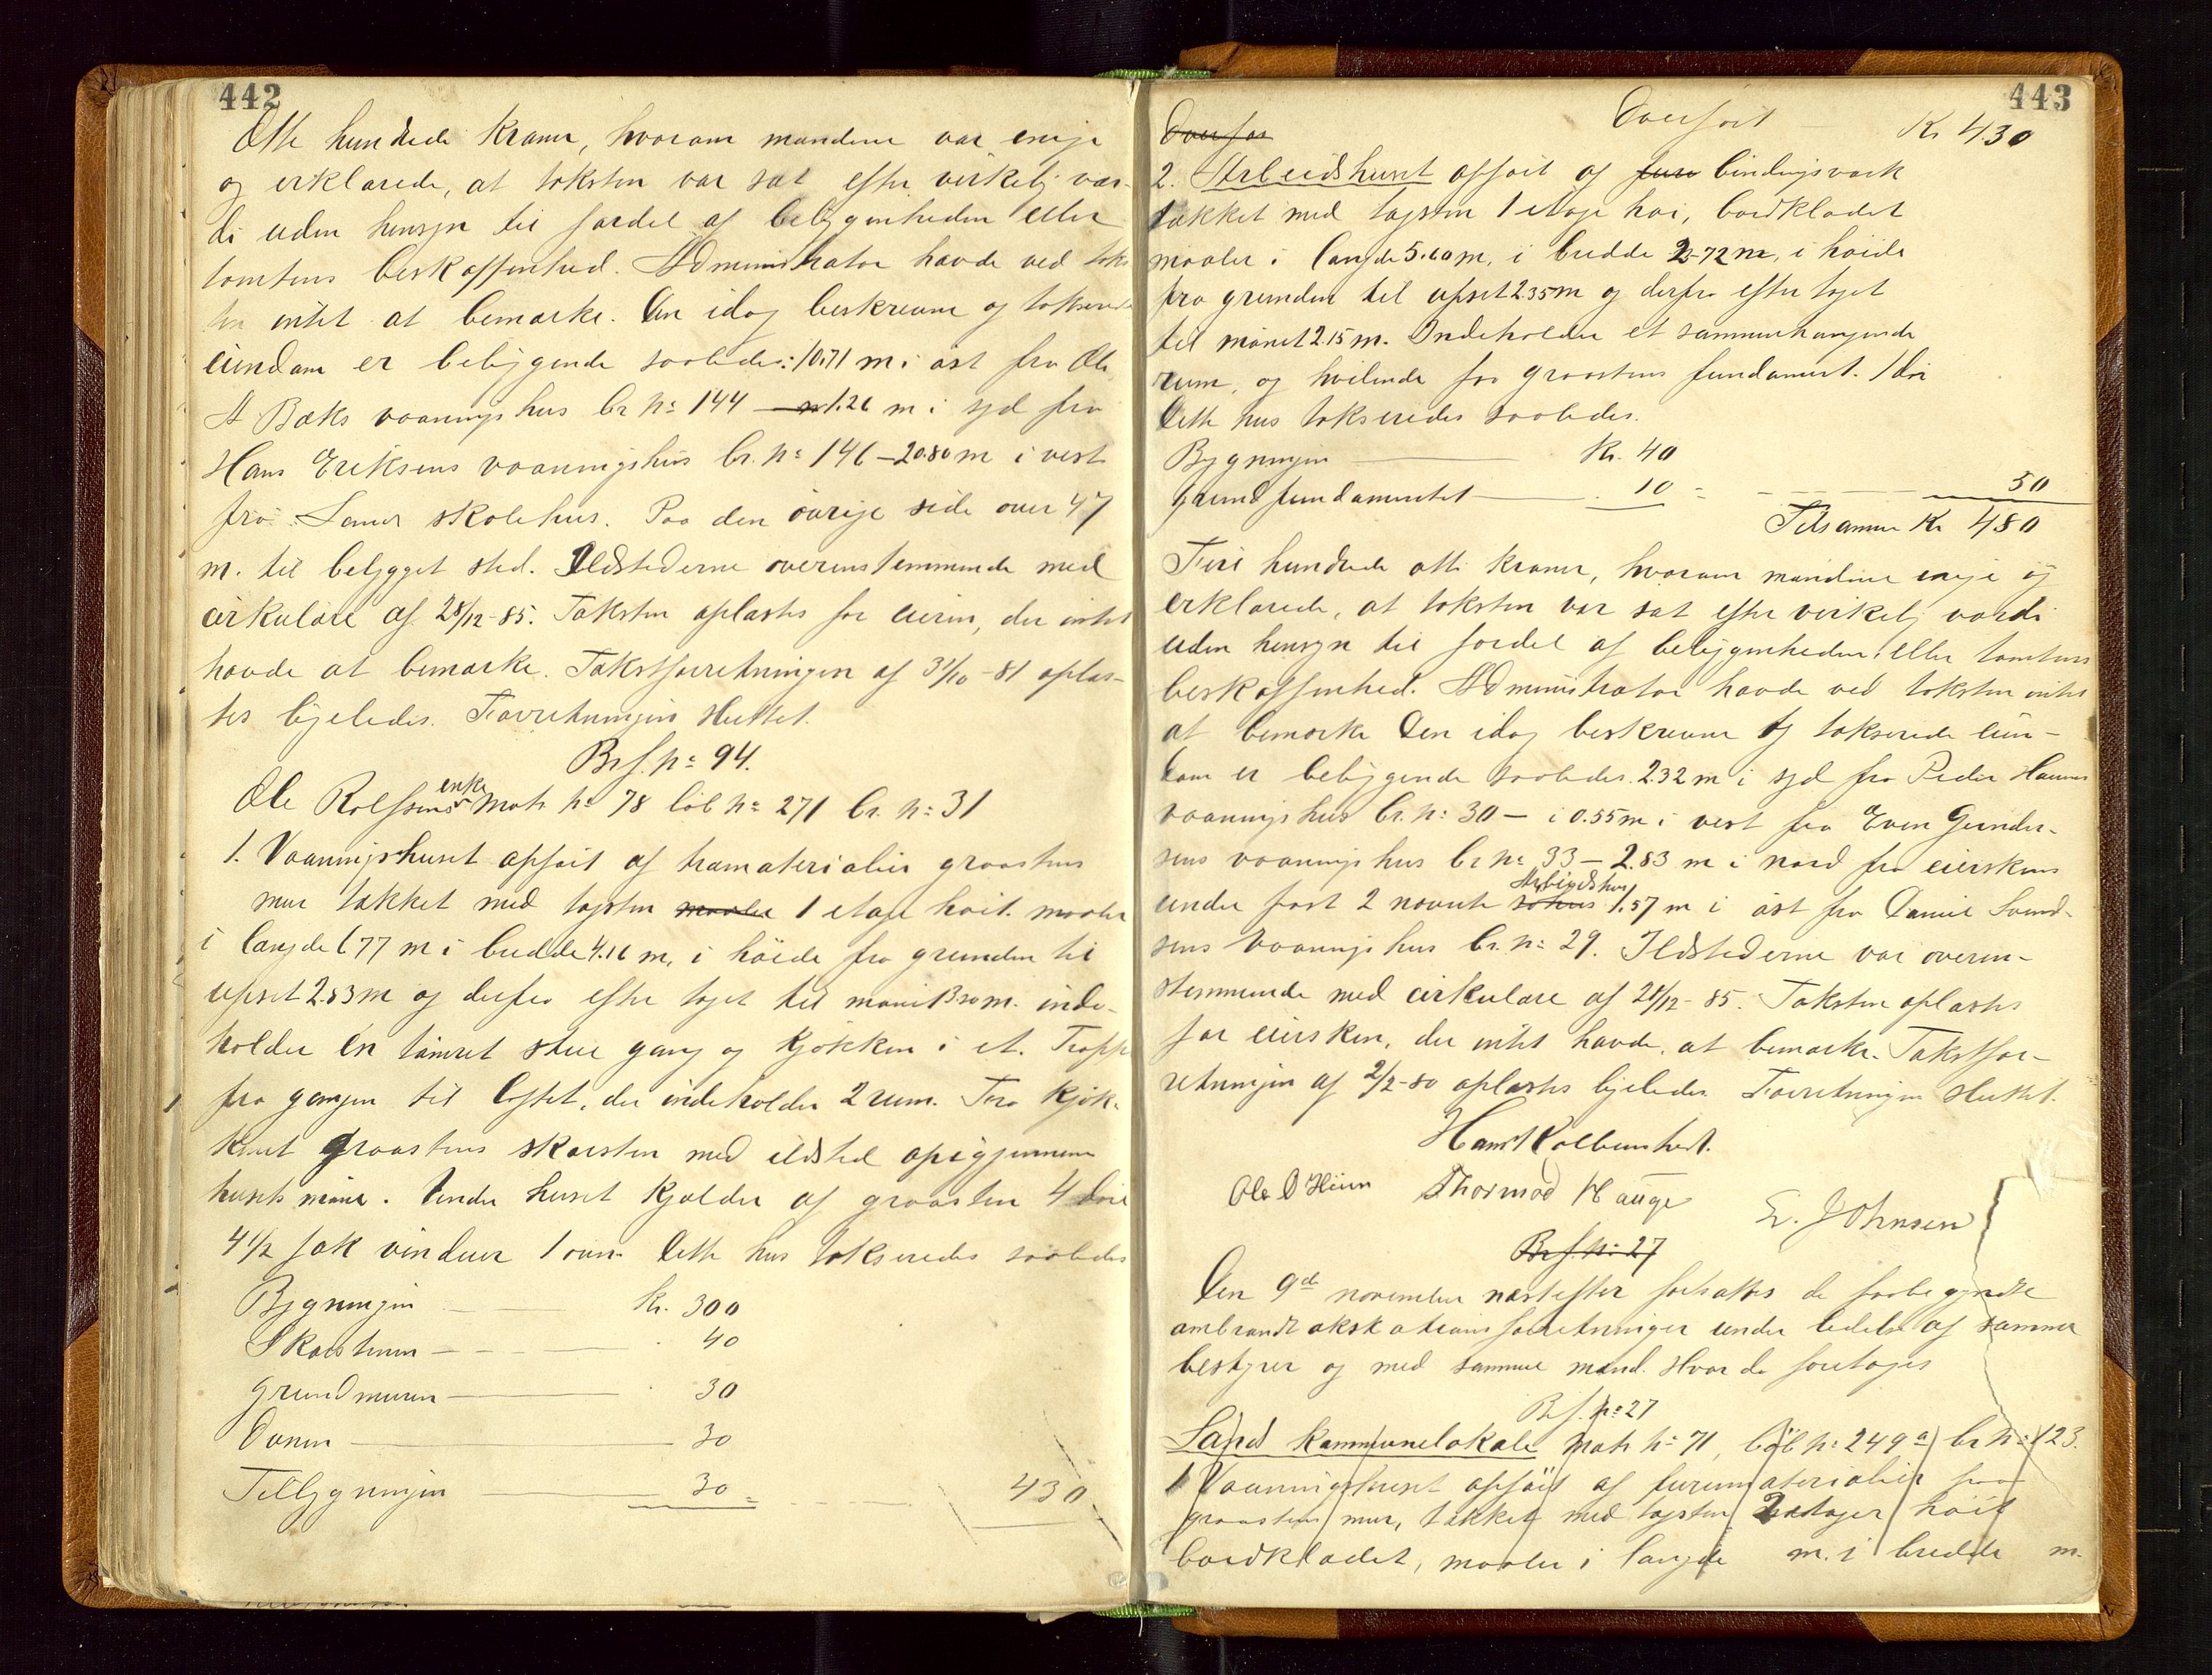 442
Otte hundrede kroner, hvorom mændene var enige
og erklærede, at taksten var sat efter virkelig vær-
di uden hensyn til fordel af beliggenheden eller
tomtens beskaffenhed. Administrator havde ved taks
ten intet at bemærke. Den idag beskrevne og takserede
eiendom er beliggende saaledes: 10.71 m i øst fra Ole
A Bæks vaaningshus br no 144 — 1.26 m i syd fra
Hans Eriksens vaaningshus br. no 146 – 20.80 m i vest
fra Sands skolehus. Paa den øvrige side over 47
m. til bebygget sted. Ildstederne overensstemmende med
cirkulære af 28/12-85. Taksten oplæstes for eieren, der intet
havde at bemærke. Takstforretningen af 31/10-81 oplæs-
tes ligeledes. Forretningen sluttet.
Brf. no 94.
Ole Rolfsens enke Matr no 78 løb no 271 br. no 31
1. Vaaningshuset opført af træmaterialier graastens
mur tækket med tagsten maaler 1 etage høit. maaler
i længde 6.77 m i bredde 4.16 m, i høide fra grunden til
upset 2.83 m og derfra efter taget til mønet 3.20 m. inde-
holder en tømret stue gang og kjøkken i et. Trappe
fra gangen til loftet, der indeholder 2 rum. Fra kjøk-
kenet graastens skorsten med ildsted opigjennem
husets møne. Under huset kjælder af graasten 4 døre
4 1/2 fak vinduer 1 ovn. Dette hus takseredes saaledes
Bygningen — Kr. 300
Skorstenen — 40
Grundmuren — 30
Ovnen — 30
Tilbygningen — 30 = 430
443
Overfør
Overført Kr 430
2. Arbeidshuset opført af furu bindingsværk
tækket med tagsten 1 etage høi, bordklædet
maaler i længde 5.60 m, i bredde 2.72 m, i høide
fra grunden til upset 2.35 m og derfra efter taget
til mønet 2.15 m. Indeholder et sammenhængende
rum, og hvilende paa graastens fundament. 1 dør
Dette hus takseredes saaledes.
Bygningen — Kr. 40
Grundfundamentet — 10 = 50
Tilsammen Kr 480
Fire hundrede otti kroner, hvorom mændene enige og
erklærede, at taksten var sat efter virkelig værdi
uden hensyn til fordel af beliggenheden eller tomtens
beskaffenhed. Administrator havde ved taksten intet
at bemærke Den idag beskrevne og takserede eien-
dom er beliggende saaledes. 2.32 m i syd fra Peder Hannes
vaaningshus br. no 30 – i 0.55 m i vest fra Even Gunder-
sens vaaningshus br no 33 – 2.83 m i nord fra eierskens
under post 2 nævnte søhus Arbeidshus 1.57 m i øst fra Daniel Svend-
sens vaaningshus br. no 29. Ildstederne var overen-
stemmende med cirkulære af 28/12-85. Taksten oplæstes
for eiersken, der intet havde at bemærke. Takstfor-
retningen af 2/2-80 oplæstes ligeledes Forretningen sluttet.
Ole O Hiim Thormod Hauge E. Johnsen
Brf. no 27
Den 9de november næstefter fortsattes de paabegyndte
ombrandtakskationsforretninger under ledelse af samme
bestyrer og med samme mænd. Hvor da foretoges
Brf. no 27
Sand kommunelokale Matr no 71, løb no 249a br no 123.
1 Vaaningshuset opført af furumaterialier paa
graastens mur, tækket med tagsten 2 etager høit
bordklædet, maaler i længde m. i bredde m.